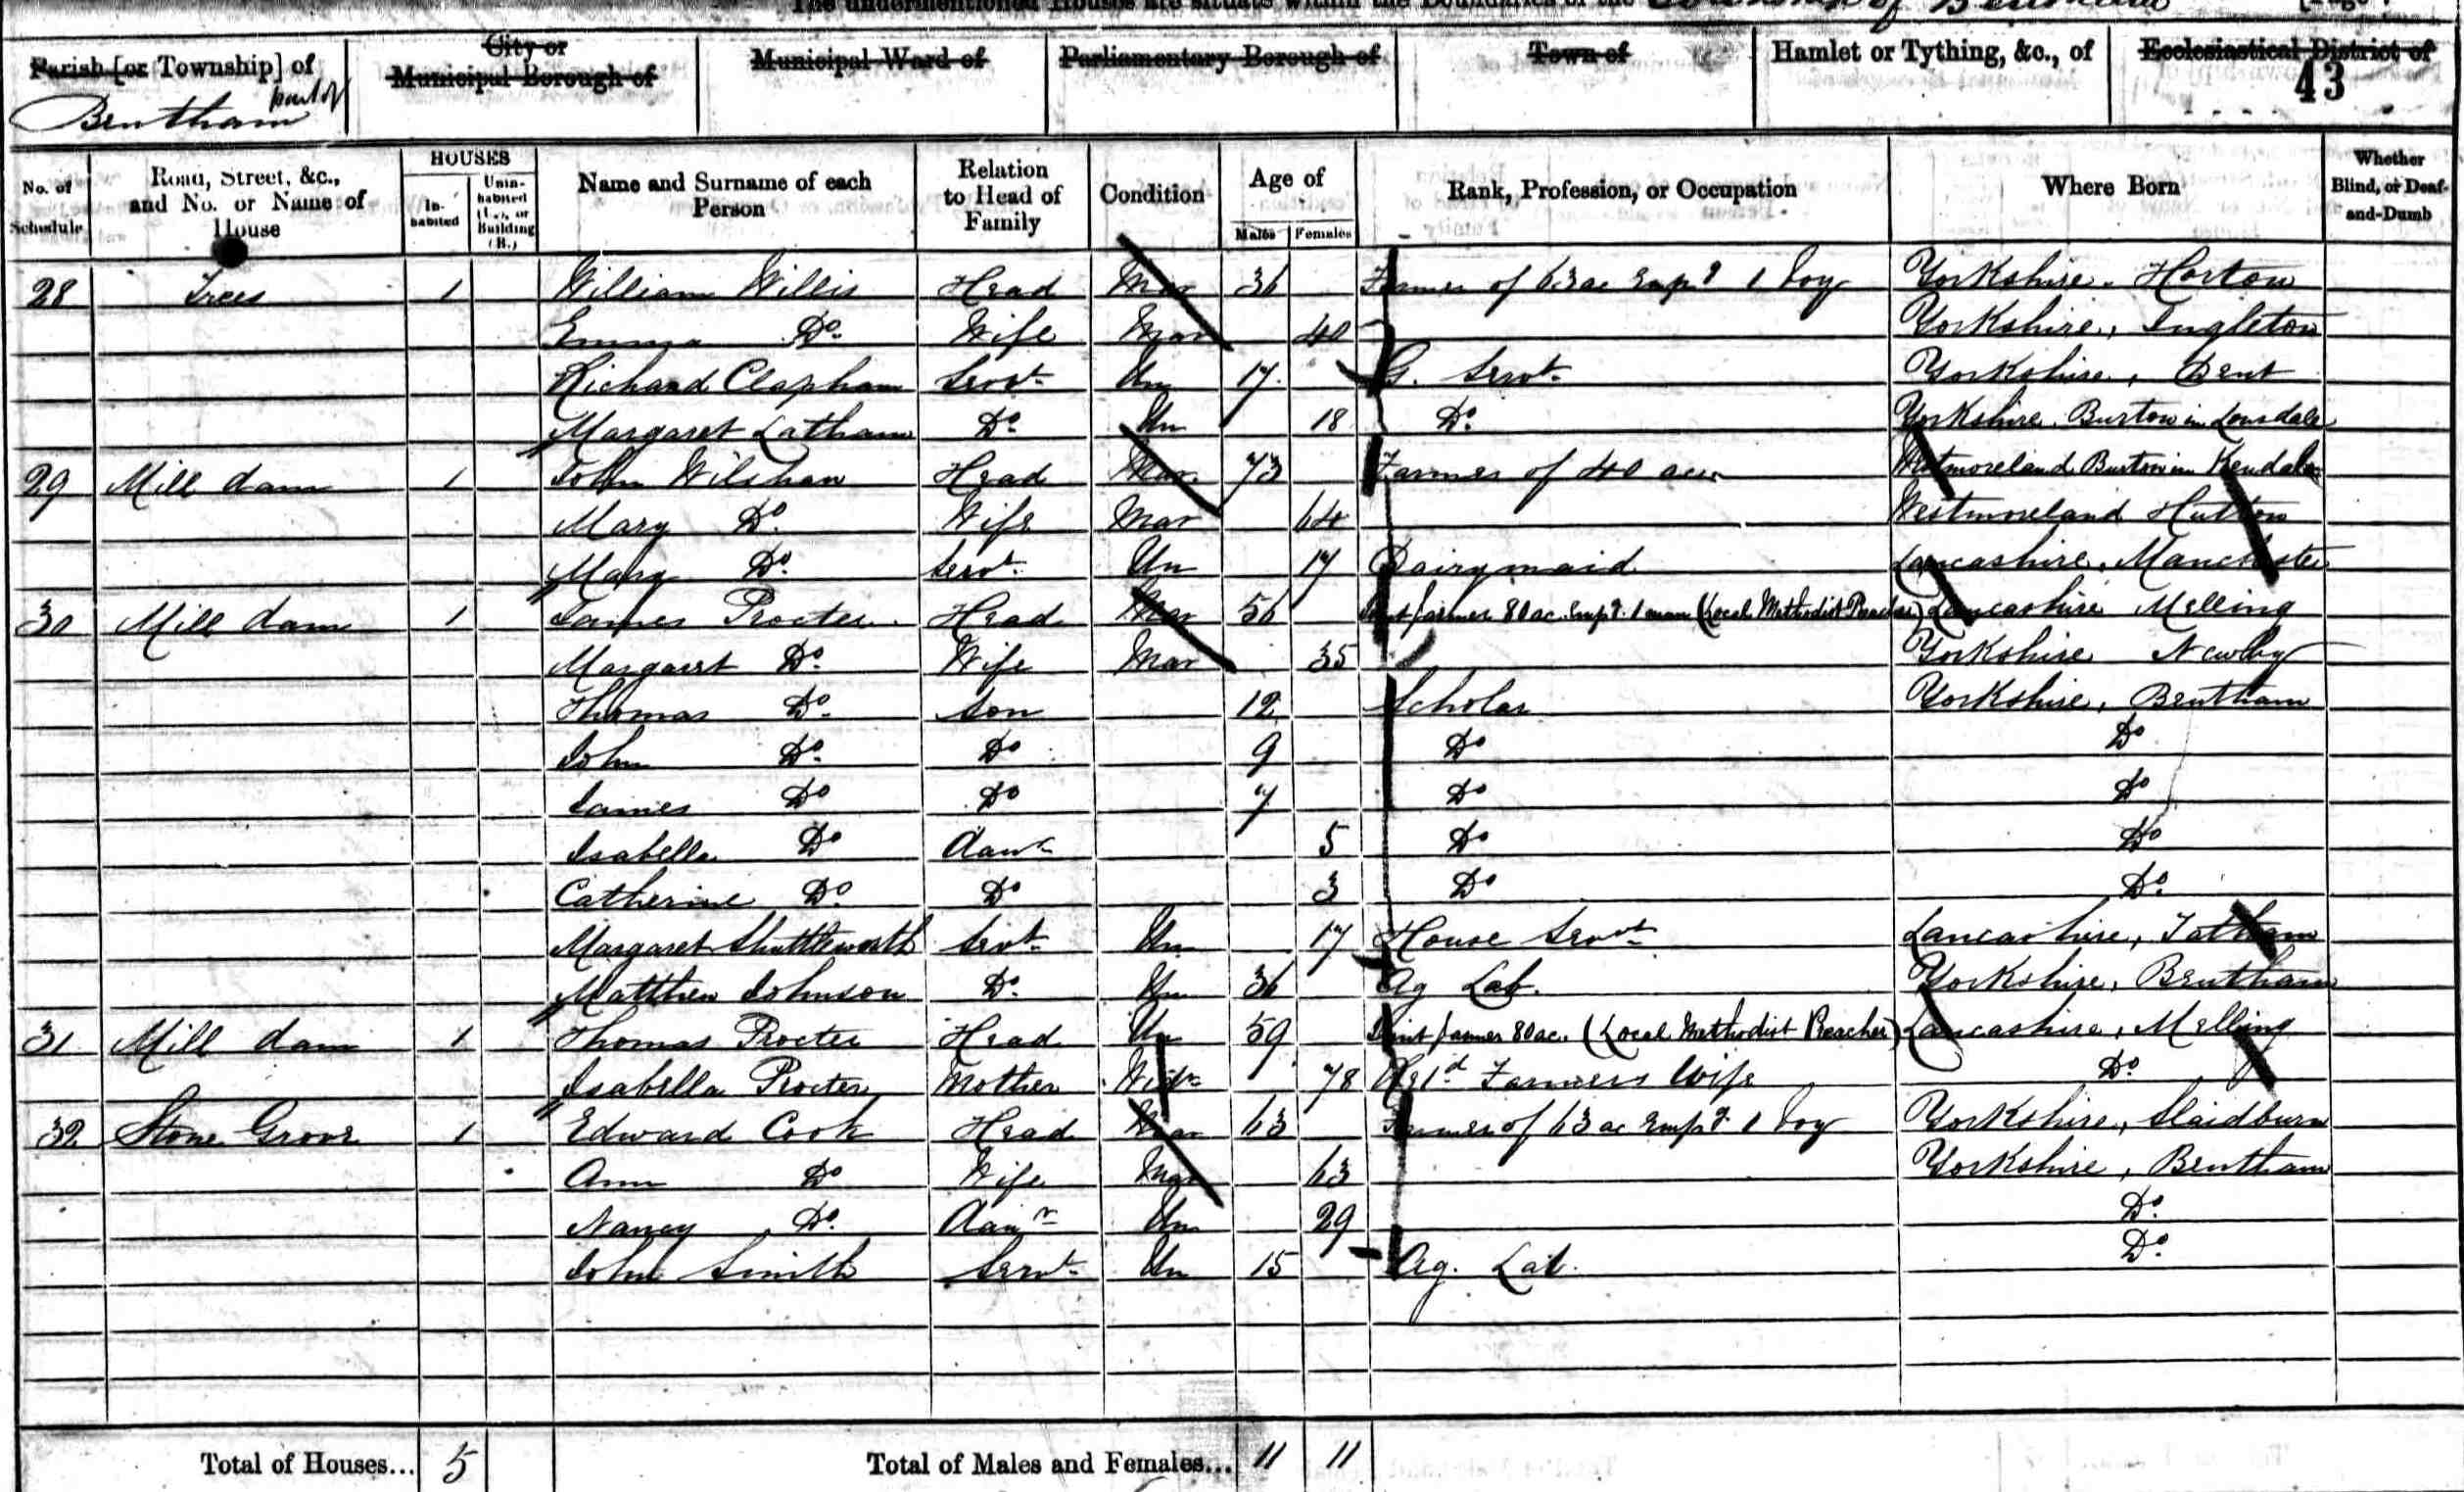 The undermentioned Houses are situate within the Boundaries of the
Parish [or Township] of City or Municipal Borough of Municipal Ward of Parliamentary Borough of Town of Hamlet or Tything, &c., of Ecclesiastical District of
part of Bentham 43
No. of Schedule Road, Street, &c., and No. or Name of House HOUSES Inhabited Uninhabited (U.), or Building (B.) Name and Surname of each Person Relation to Head of Family Condition Age of Males Females Rank, Profession, or Occupation Where Born Whether Blind, or Deaf-and-Dumb
28 Trees 1 William Willis Head Mar 36 Farmer of 63 ac Emp.g 1 boy Yorkshire. Horton
Emma Do. Wife Mar 40 Yorkshire, Ingleton
Richard Clapham Servt. Un 17 G. Servt. Yorkshire, Dent
Margaret Latham Do. Un 18 Do. Yorkshire. Burton in Lonsdale
29 Mill dam 1 John Wilshan Head Mar. 73 Farmer of 40 acr Westmoreland Burton in Kendale
Mary Do. Wife Mar 64 Westmoreland Hutton
Mary Do. Servt. Un 17 Dairymaid Lancashire, Manchester
30 Mill dam 1 James Procter Head Mar 56 Joint farmer 80 ac. Emp.g. 1 man (Local Methodist Preacher) Lancashire Melling
Margaret Do. Wife Mar 35 Yorkshire Newby
Thomas Do. Son 12 Scholar Yorkshire, Bentham
John Do. Do 9 Do Do
James Do Do 7 Do Do
Isabella Do Daur 5 Do Do
Catherine Do. Do 3 Do Do.
Margaret Shuttleworth Servt. Un 17 House Servt. Lancashire, Tatham
Matthew Johnson Do. Un 36 Ag Lab. Yorkshire, Bentham
31 Mill dam 1 Thomas Procter Head Un 59 Joint farmer 80 ac. (Local Methodist Preacher) Lancashire, Melling
Isabella Procter Mother Widr 78 Retd. Farmers Wife Do.
32 Stone Grove 1 Edward Cook Head Mar 63 Farmer of 63 ac Emp.g 1 boy Yorkshire, Slaidburn
Ann Do Wife Mar 63 Yorkshire, Bentham
Nancy Do. Daur Un 29 Do.
John Smith Servt. Un 15 Ag. Lab. Do.
Total of Houses... 5 Total of Males and Females... 11 11